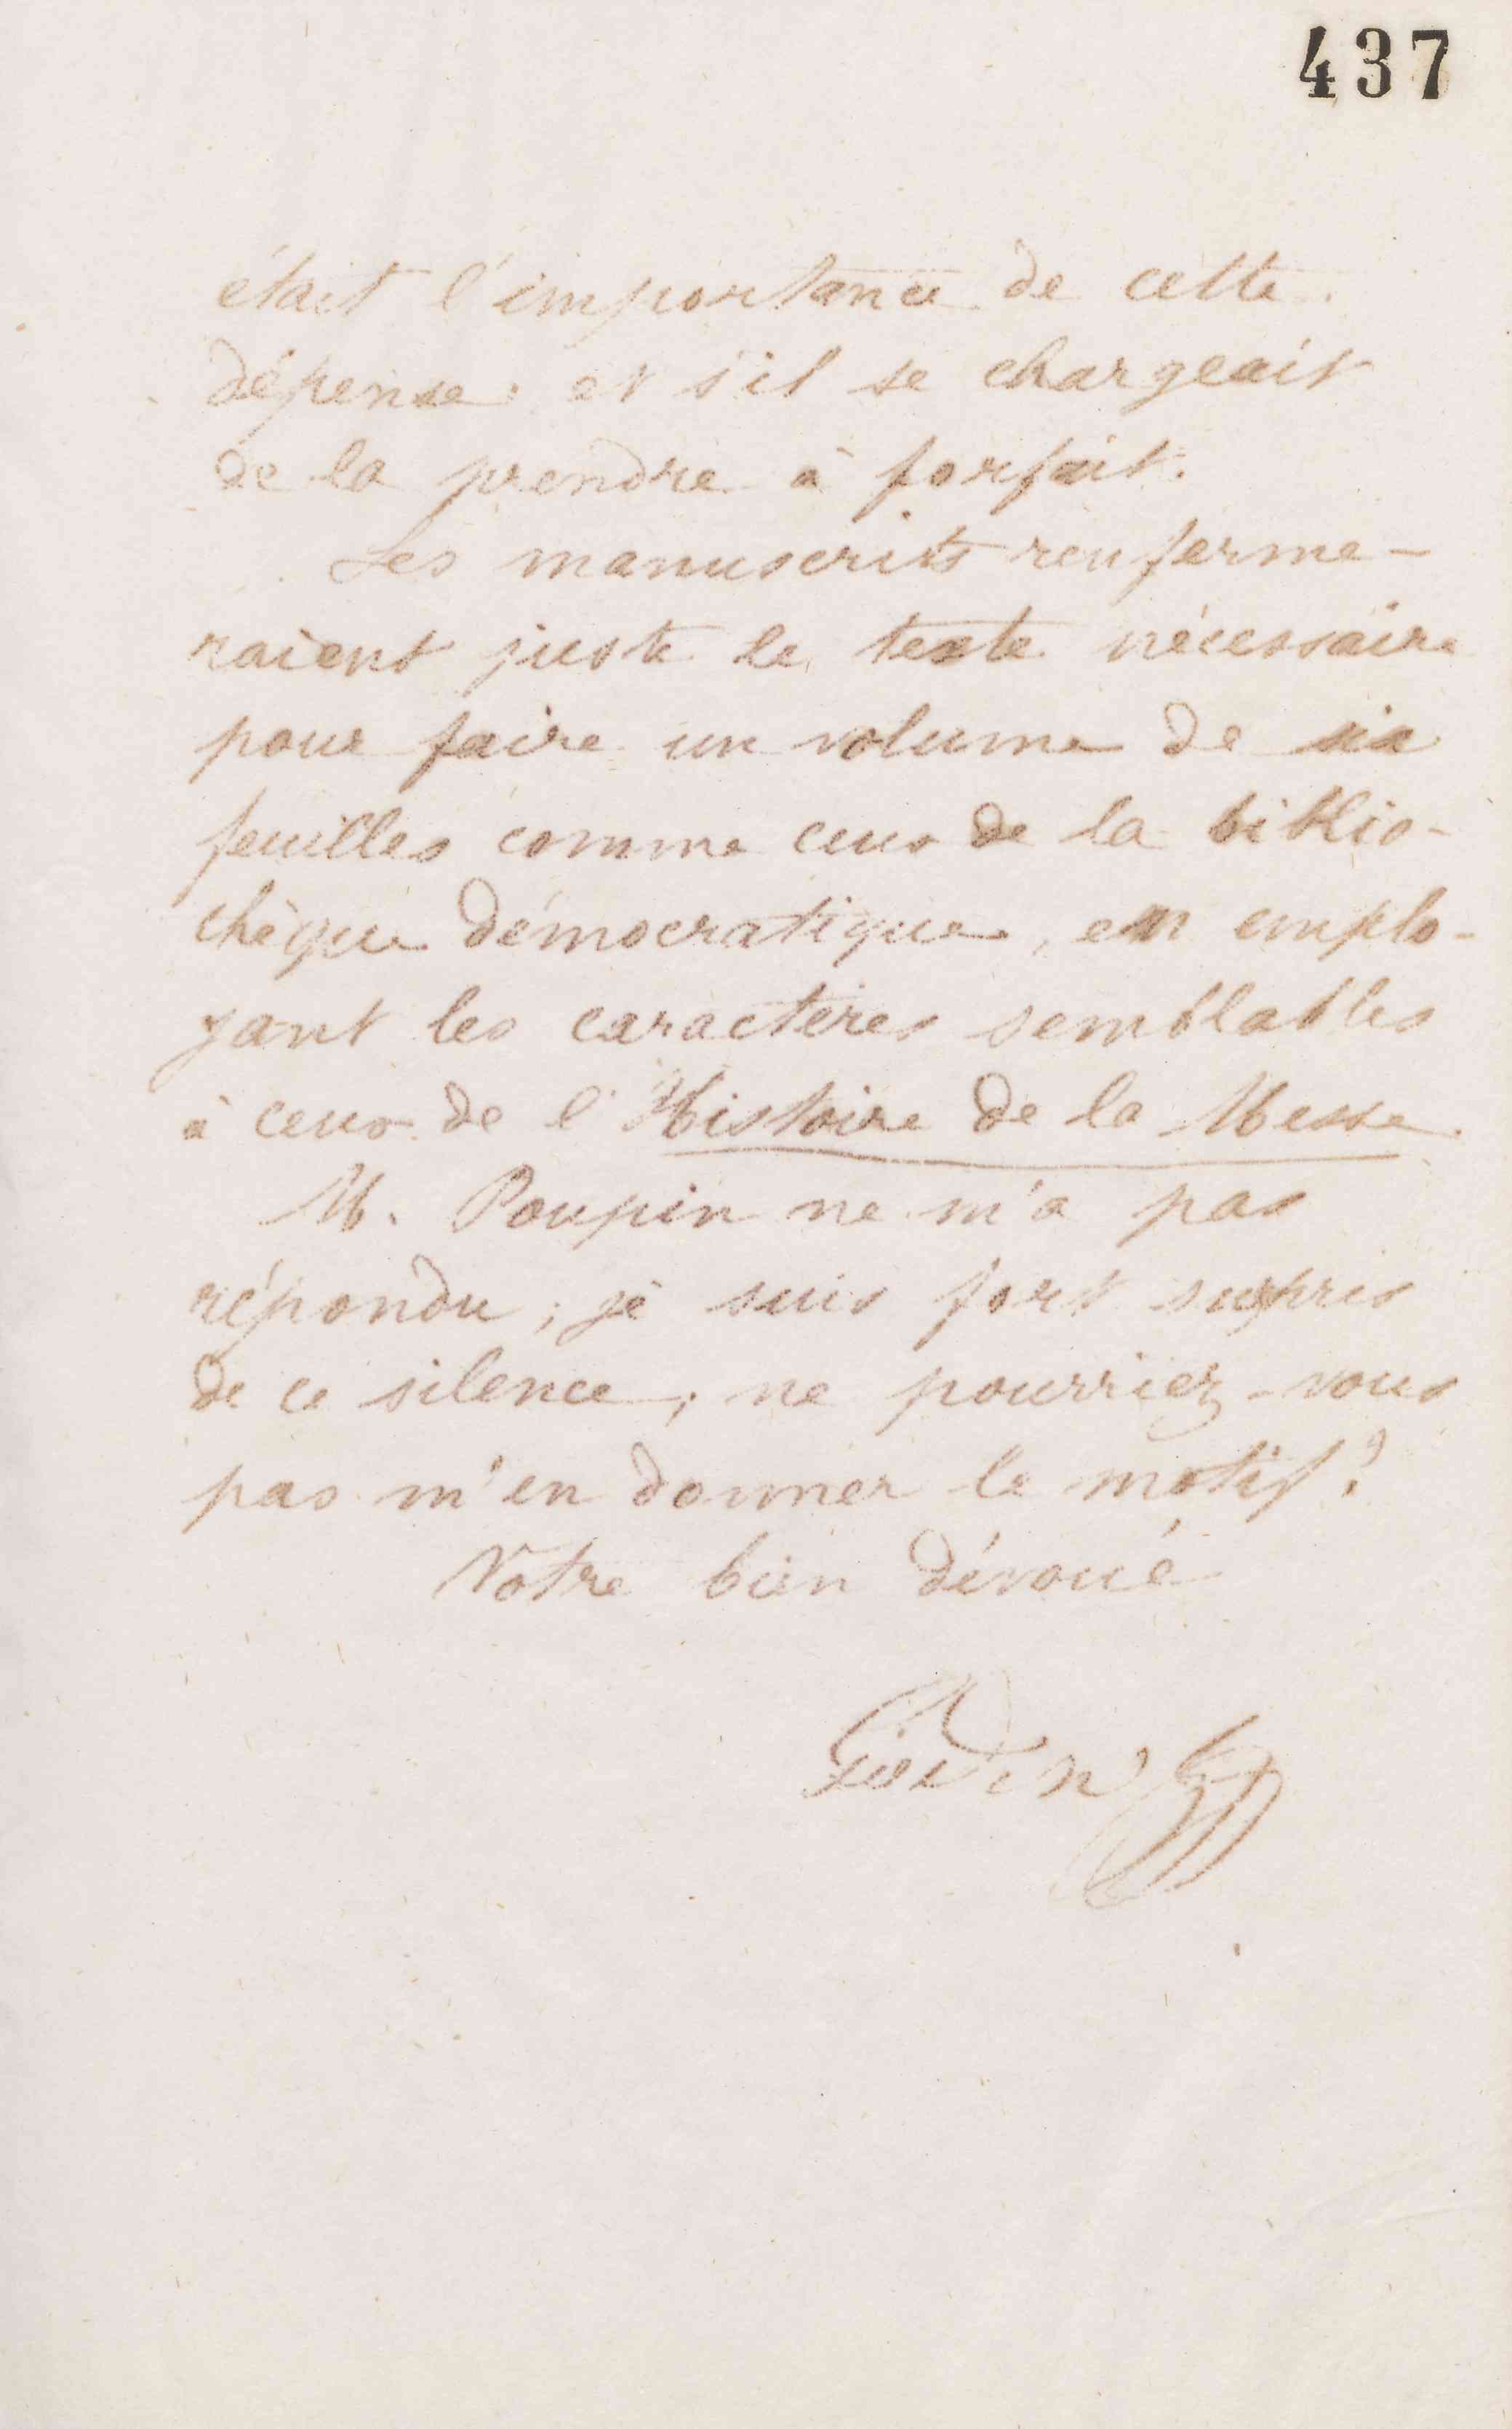 437
était l'importance de cette
dépense et s'il se chargeait
de la prendre à forfait.
Les manuscrits renferme-
raient juste le texte nécessaire
pour faire un volume de six
feuilles comme ceux de la biblio-
thèque démocratique, en emplo-
yant les caractères semblables
à ceux de l'Histoire de la Messe.
M. Poupin ne m'a pas
répondu ; je suis fort surpris
de ce silence ; ne pourriez-vous
pas m'en donner le motif ?
Votre bien dévoué
Godin